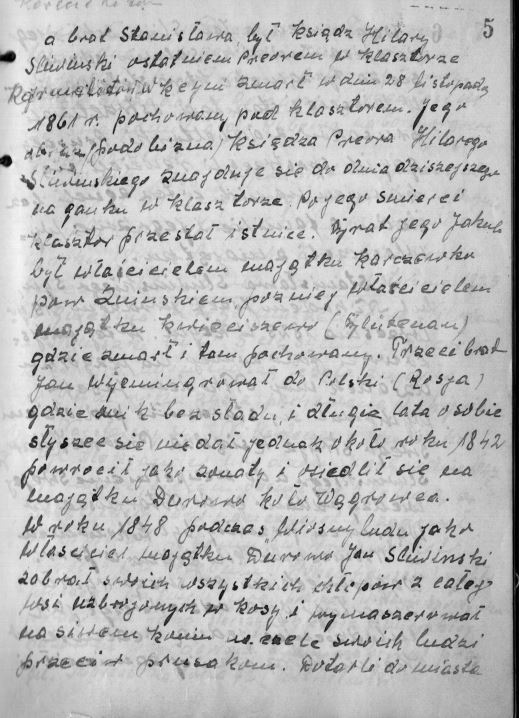 5
a brat Stanisława, był ksiądz Hilary
Śliwinski ostatniem Preorem w klasztorze
Karmelitów w Kcyni zmarł w dniu 28 listopada
1861 r. pochowany pod klasztorem. Jego
obraz (podobizna) księdza Preora Hilarego
Śliwinskiego znajduje się do dnia dzisiejszego
na ganku w klasztorze. Po jego smierci
klasztor przestał istnieć. Brat jego Jakub
był właścicielem majątku Karczewko
pow Żninskiem, pozniej właścicielem
majątku Kwieciszewo (Blütenau)
gdzie zmarł i tam pochowany. Trzeci brat
Jan wyemingrował do Polski (Rosja)
gdzie znik bez sladu, i długie lata o sobie
słyszec się nie dał jednak około roku 1842
powrocił jako zonaty i osiedlił się na
majątku Durowo koło Wągrowca.
W roku 1848 podczas „Wiosny ludu jako
właściciel majątku Durowo Jan Śliwinski
zabrał swoich wszystkich chłopow z całej
wsi uzbrojonych w kosy i wymaszerował
na siwem koniu na czele swoich ludzi
przeciw prusakom. Dotarli do miasta